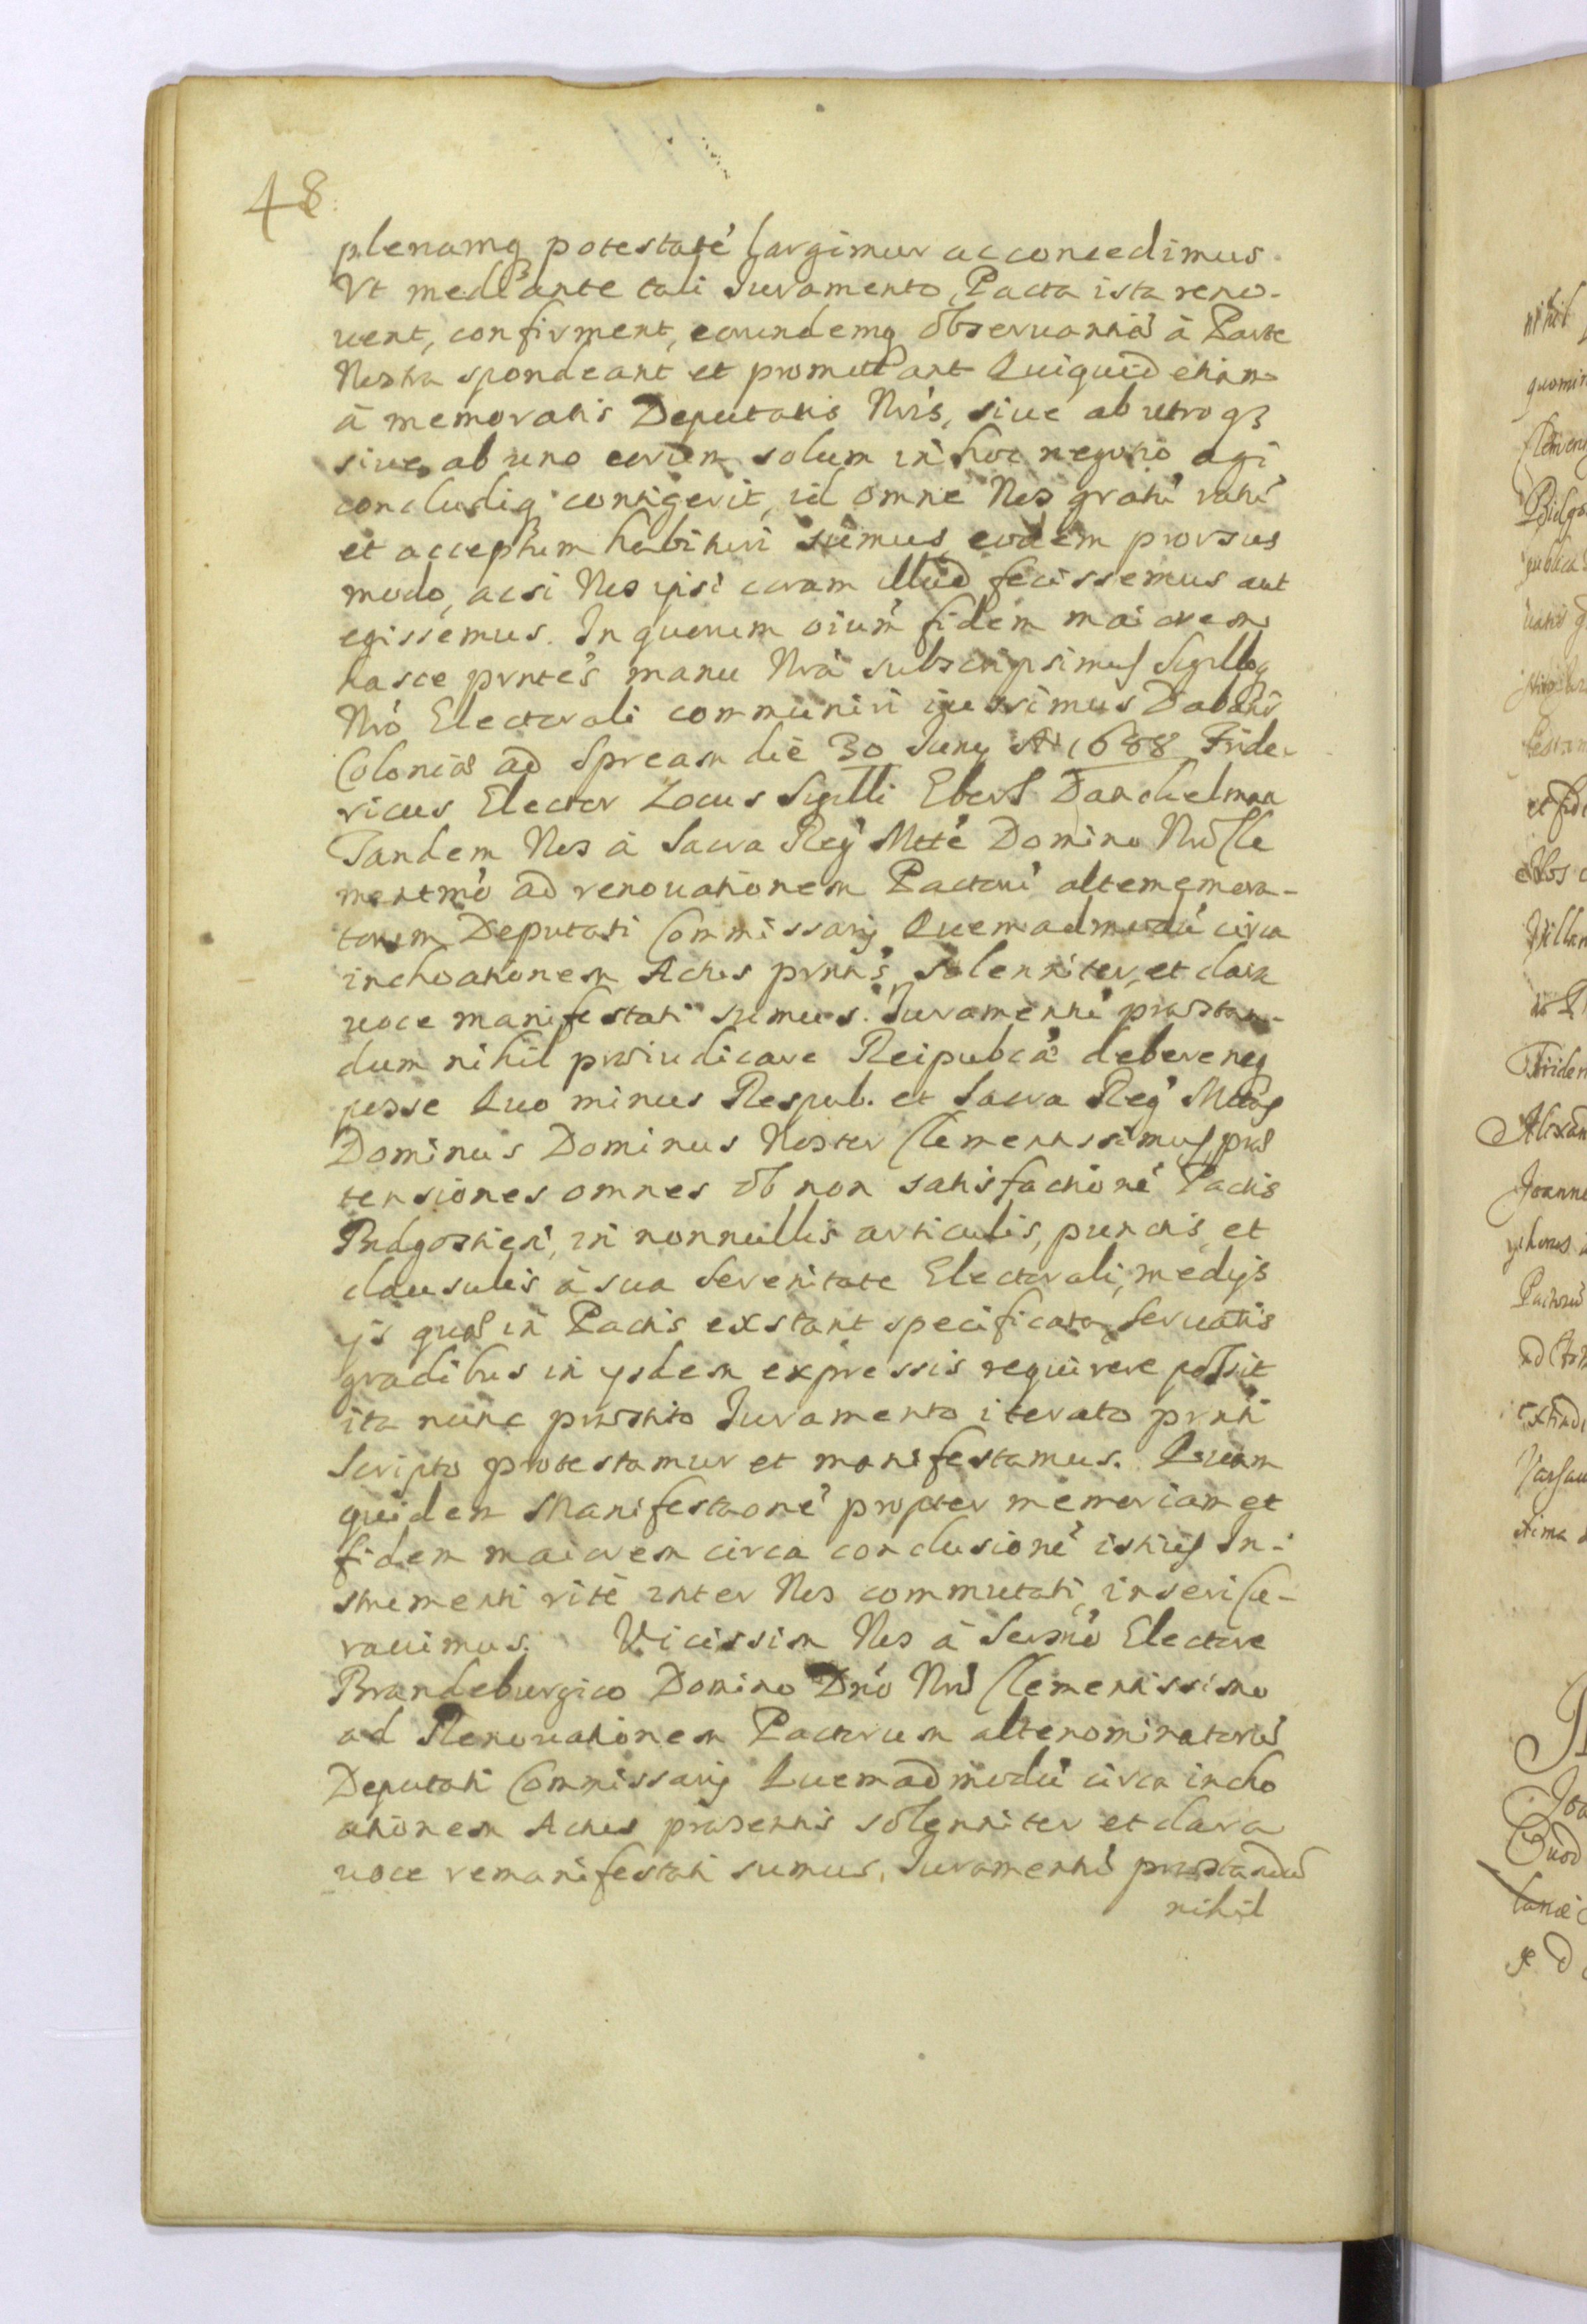 48
plenamq potestaté largimur ac concedimus
Vt mediante tali Iuramento, Pacta ista reno-
uent, confirment, eorundemq obseruantiã à Parte
Nostra spondeant et promittant Quiquid etiam
à memoratis Deputatis Nris, siue ab utroq3
siue ab uno eorum solum in hoc negotio agi
concludiq contigerit, id omne Nos gratú ratú
et acceptum habituri sumus, eodem prorsus
modo, acsi Nos ipsi coram illud fecissemus aut
egissemus. In quorum oium fidem maiorem
hasce pnrtes manu Nrà subscripsimus Sigilloq
Nró Electorali communiri iussimus Dabant
Coloniæ ad Spream die 30 Iuny Aº 1688 Fride-
ricus Elector Locus Sigilli Eber Danckelman
Tandem Nos à Sacra Reg Mtté Domino Nrõ Cle
mentmó ad renouationem Pactorú altememora-
torum Deputati Commissarij Quemadmodú circa
inchoationem Actus prntis, solenniter, et clara
uoce manifestati sumus. Iuramentú præstan-
dum nihil præiudicare Reipubcæ debere neq
posse Quo minus Respub. et Sacra Reg Mttas
Dominus Dominus Noster Clementissimus, præ
tensiones omnes ob non satisfactioné Pactis
Bidgostien, in nonnullis articulis, punctis, et
clausulis à sua Serenitate Electorali, medijs
ijs quæ in Pactis exstant specificata, seruatis
gradibus in ysdem expressis requirere possit
ita nunc præstito Iuramento iterato prnti
Scripto protestamur et manifestamus. Quam
quidem Manifestaoné propter memoriam et
fidem maiorem circa conclusioné istius In-
strumenti rité inter Nos commutati, inseri cu-
rauimus. Vicissim Nos à Sermó Electore
Brandeburgico Domino Dnó Nrõ Clementissimo
ad Renouationem Pactorum altenominatorũ
Deputati Commissarij Quemadmodú circa incho
ationem Actus præsentis solenniter et clara
uoce remanifestati sumus. Iuramentú præstandũ
nihil